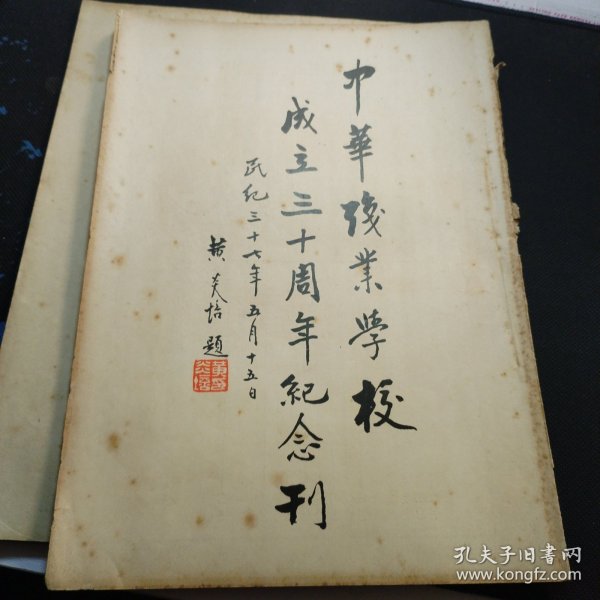 中華職業學校
成立三十周年紀念刊
民紀三十七年五月十五日
黃炎培題
黃炎培
孔夫子旧书网
www.kongfz.com